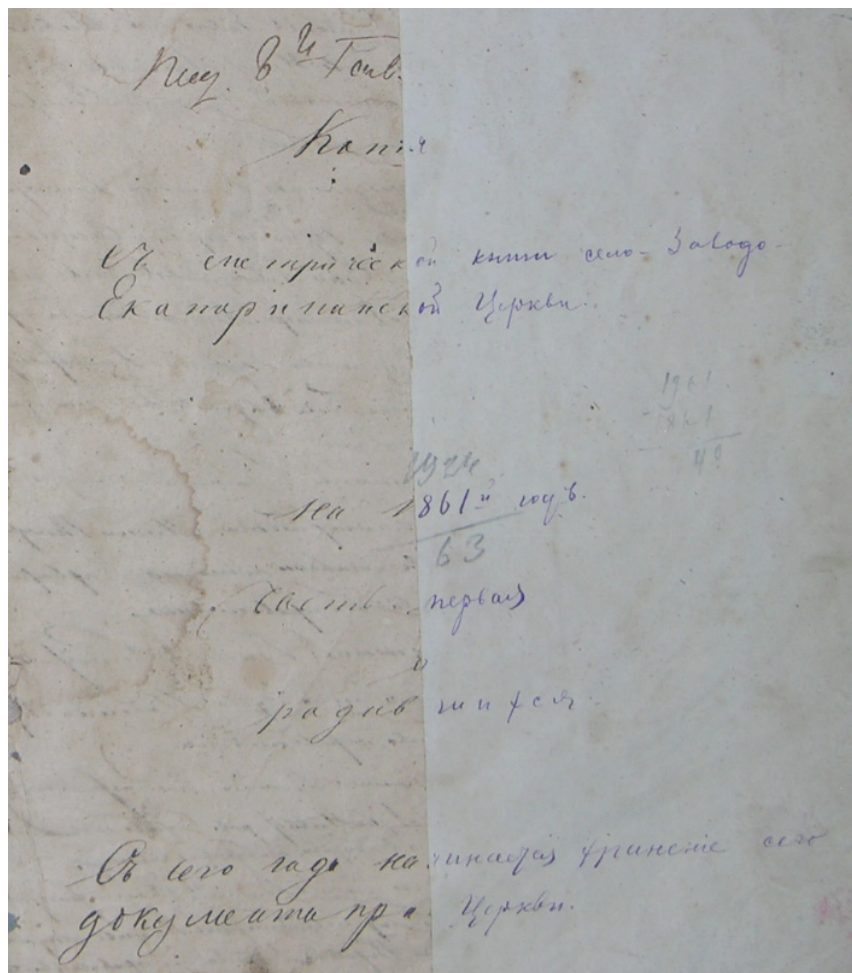 Копия
Съ метрической книги село-Заводо-
Екатарининской Церкви.
1961
1861
40
1924
на 1861й годъ.
63
Часть первая
о
родившихся.
Съ сего года начинается хранение сего
документа при Церкви.